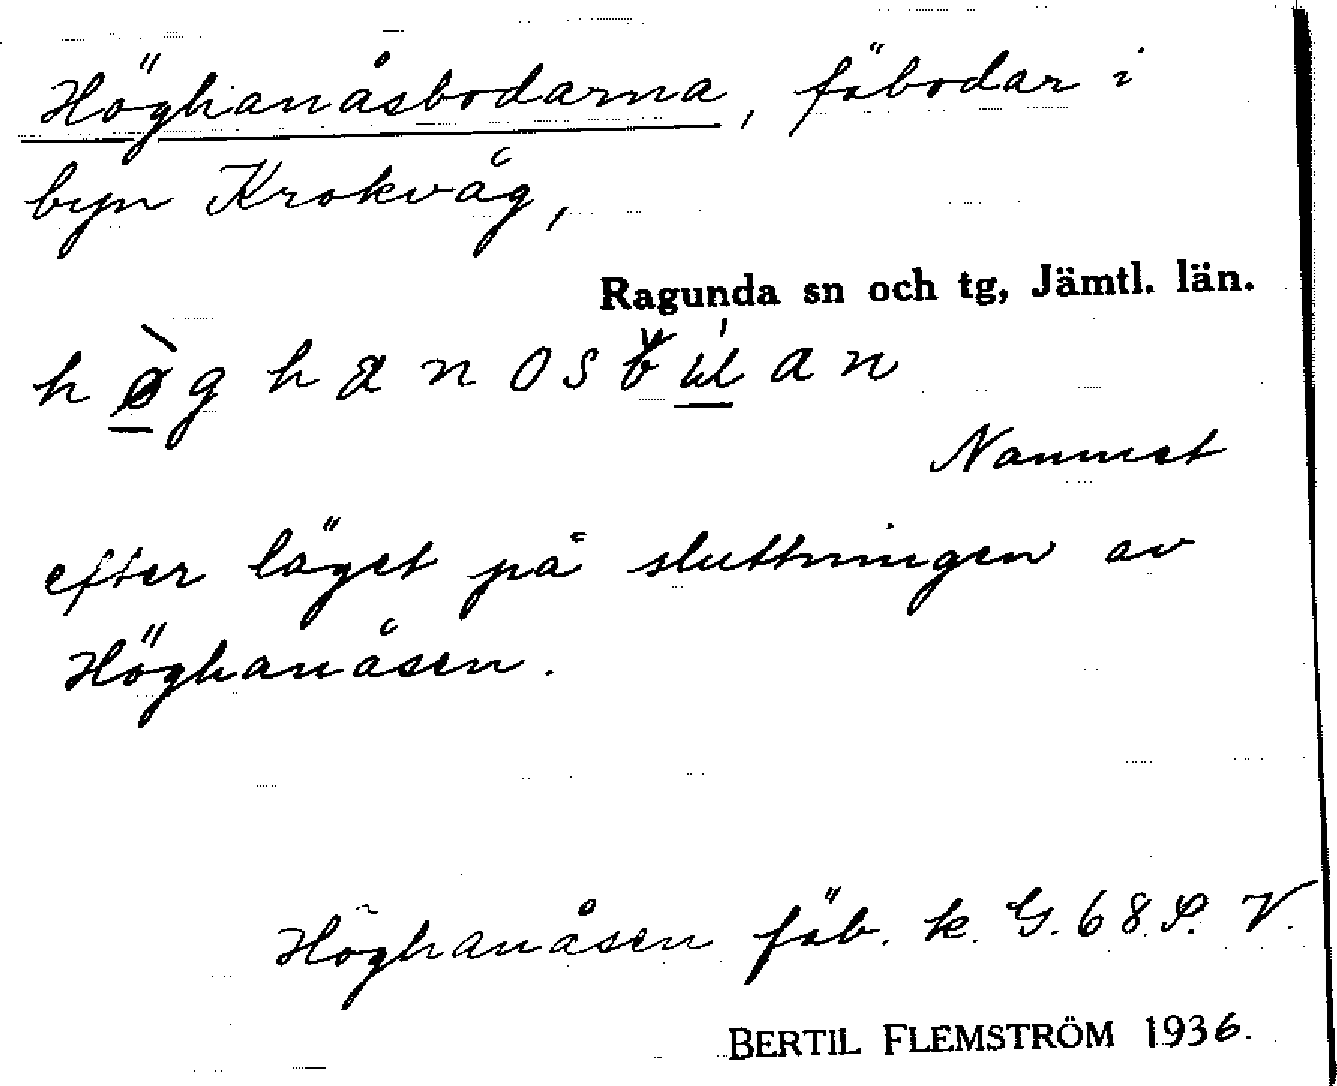 Höghanåsbodarna, fäbodar i
byn Krokvåg,
Ragunda sn och tg, Jämtl. län.
Namnet
efter läget på sluttningen av
Höghanåsen.
Höghanåsen fäb. k. G. 68 S. V.
BERTIL FLEMSTRÖM 1936.